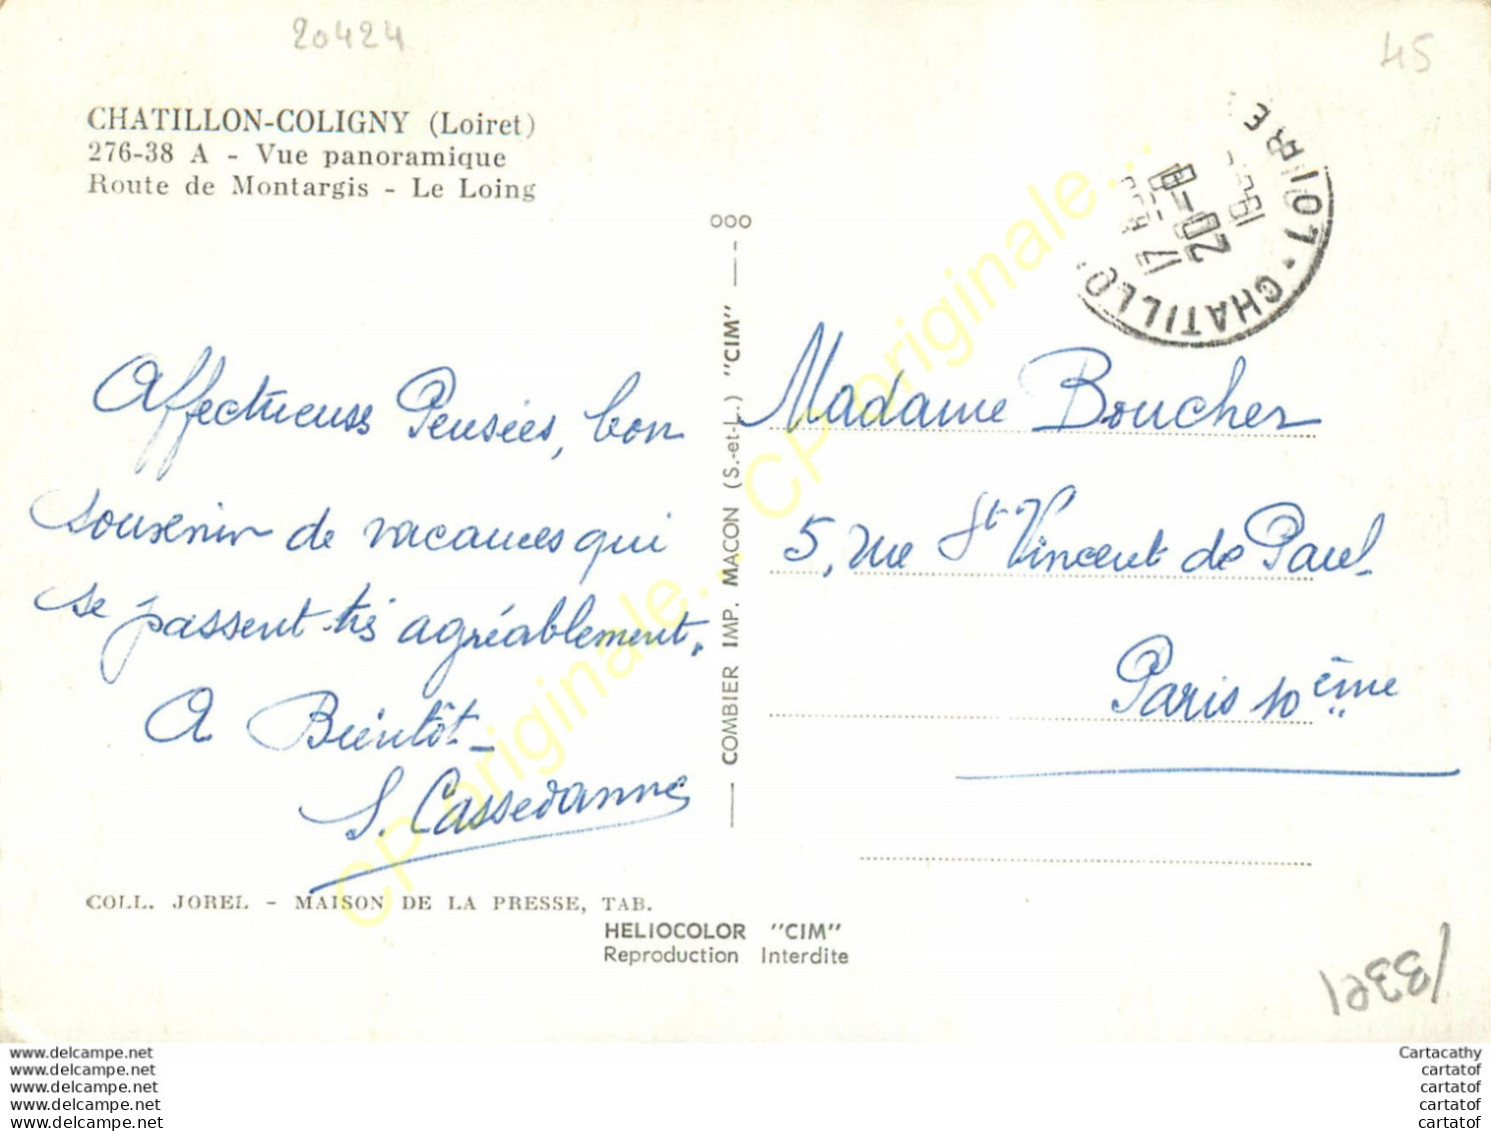 20424
45
CHATILLON-COLIGNY (Loiret)
276-38 A - Vue panoramique
Route de Montargis - Le Loing
CHATILLO
LOIRE
17
20-8
19
Affectueuses Pensées, bon
souvenir de vacances qui
se passent très agréablement.
A Bientôt_
S. Cassedanne
COLL. JOREL - MAISON DE LA PRESSE, TAB.
ooo
COMBIER IMP. MACON (S.-et-L.) "CIM"
HELIOCOLOR "CIM"
Reproduction Interdite
Madame Boucher
5, rue St Vincent de Paul
Paris 10ème
CP originale... CP originale...
www.delcampe.net
www.delcampe.net
www.delcampe.net
www.delcampe.net
www.delcampe.net
Cartacathy
cartatof
cartatof
cartatof
cartatof